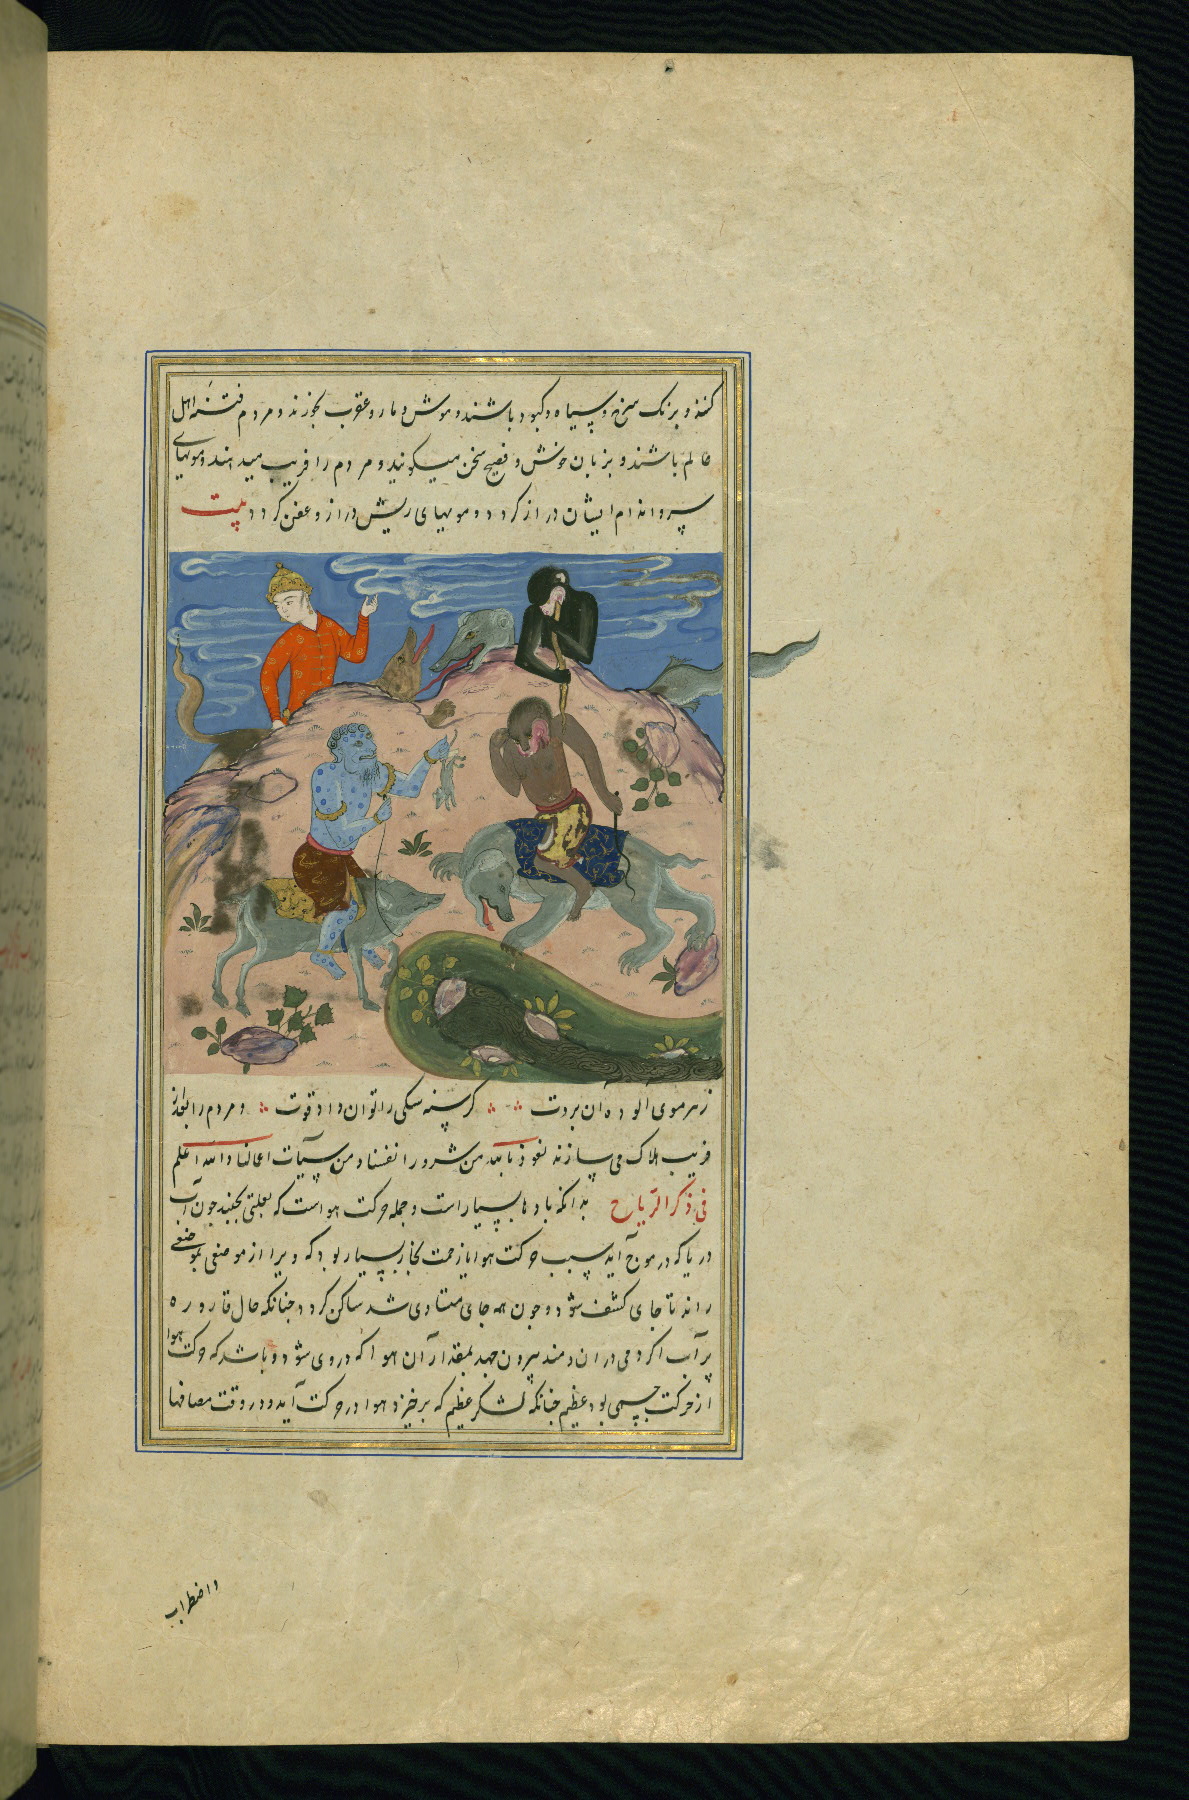 کنند و برنک سرخ و سیاه و کبود باشند و موش و مار و عقرب بخورند و مردم فتنه اهل
عالم باشند و بزبان خوش و فصیح سخن میکویند و مردم را فریب میدهند و مویهای
سر و اندام ایشان دراز کردد و مویهای ریش دراز و عفن کردد بیت
زهر موی آلوده آن بروت کرسنه سکی را توان داد قوت و مردم را
فریب هلاک می سازند نعوذ بالله من شرور انفسنا و من سیآت اعمالنا والله اعلم
فی ذکر الریاح بدانکه بادها بسیار است و جمله حرکت هواست که بعلتی بجنبد چون آب
دریا که در موج آید سبب حرکت هوا یا زحمت بخار بسیار بود که ویرا از موضعی بموضعی
راند تا جای کشف شود و چون همه جای متساوی شد ساکن کردد چنانکه حال قاروره
پر آب اکر دمی در ان دمند بیرون جهد بمقدار آن هوا که در وی شود و باشد که حرکت هوا
از حرکت جسمی بود عظیم چنانکه لشکر عظیم که برخیزد هوا در حرکت آید و در وقت مصافها
واضطراب